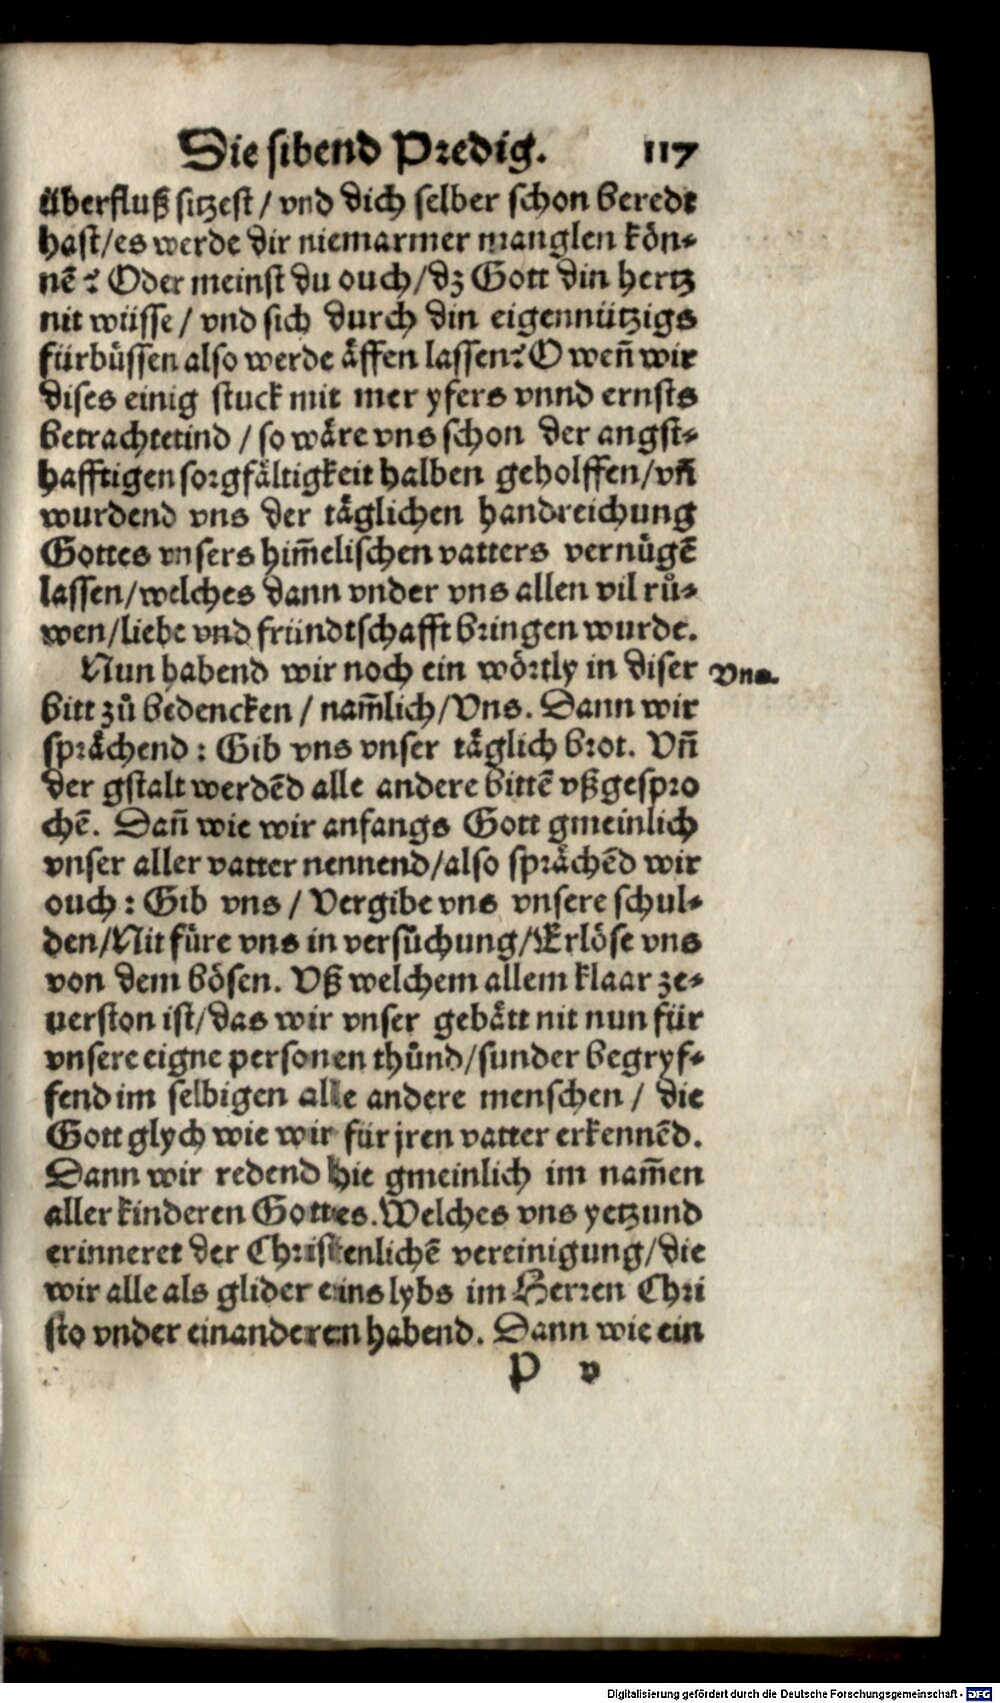 Die sibend Predig. 117
überfluß sitzest / vnd dich selber schon beredt
hast/es werde dir niemarmer manglen kön⸗
nē? Oder meinst du ouch/dz Gott din hertz
nit wüsse / vnd sich durch din eigennützigs
fürbüssen also werde äffen lassen? O weñ wir
dises einig stuck mit mer yfers vnnd ernsts
betrachtetind / so wäre vns schon der angst⸗
hafftigen sorgfältigkeit halben geholffen/vñ
wurdend vns der täglichen handreichung
Gottes vnsers him̄elischen vatters vernügē
lassen/welches dann vnder vns allen vil rů⸗
wen/liebe vnd fründtschafft bringen wurde.
Nun habend wir noch ein wörtly in diser Vns.
bitt zů bedencken / nam̄lich/Vns. Dann wir
sprächend: Gib vns vnser täglich brot. Vñ
der gstalt werdēd alle andere bittē vßgespro
chē. Dañ wie wir anfangs Gott gmeinlich
vnser aller vatter nennend/also sprächēd wir
ouch: Gib vns / Vergibe vns vnsere schul⸗
den/Nit füre vns in versůchung/Erlöse vns
von dem bösen. Vß welchem allem klaar ze⸗
verston ist/das wir vnser gebätt nit nun für
vnsere eigne personen thůnd/sunder begryf⸗
fend im selbigen alle andere menschen / die
Gott glych wie wir für jren vatter erkennēd.
Dann wir redend hie gmeinlich im nam̄en
aller kinderen Gottes. Welches vns yetzund
erinneret der Christenlichē vereinigung/die
wir alle als glider eins lybs im Herren Chri
sto vnder einanderen habend. Dann wie ein
P v
Digitalisierung gefördert durch die Deutsche Forschungsgemeinschaft - DFG